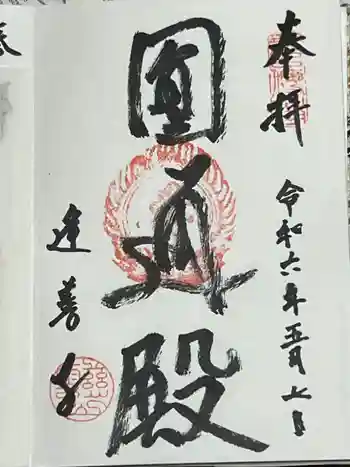 奉拝
令和六年五月七日
圓通殿
建善寺